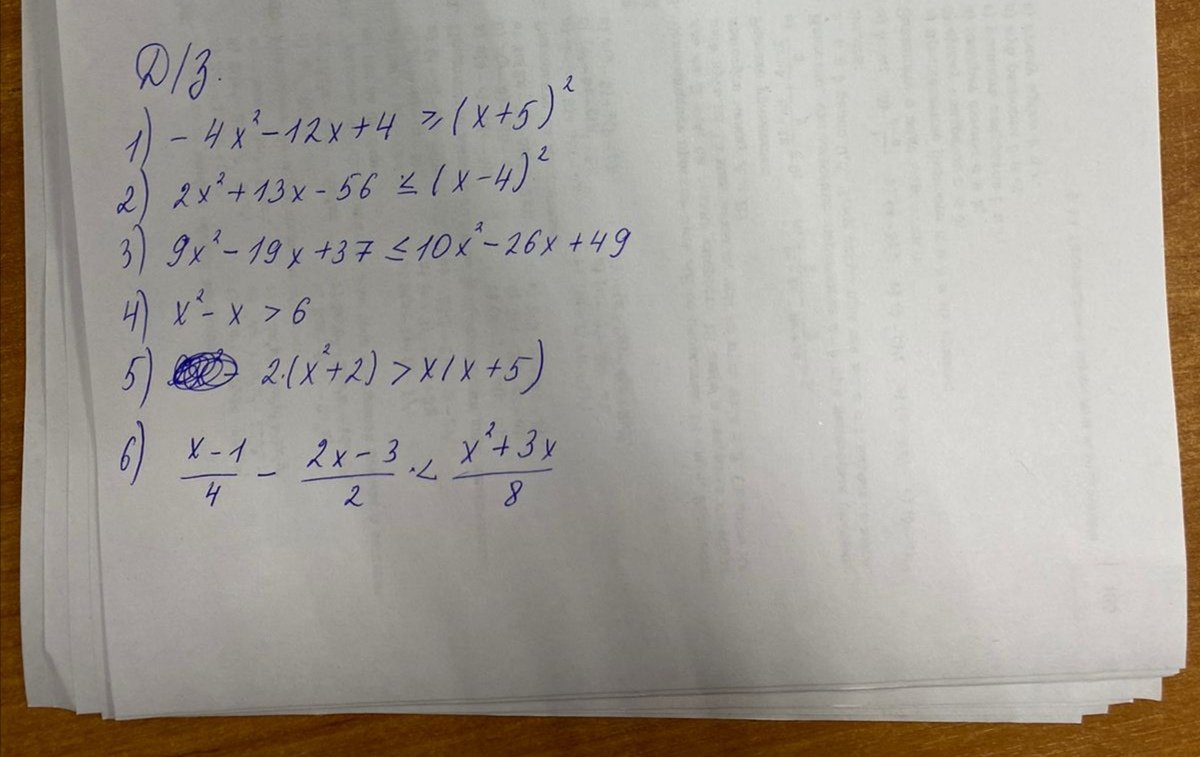 Д/З.
1) -4x²-12x+4 ≥ (x+5)²
2) 2x²+13x-56 ≤ (x-4)²
3) 9x²-19x+37 ≤ 10x²-26x+49
4) x²-x > 6
5) 2·(x²+2) > x(x+5)
6) (x-1)/4 - (2x-3)/2 < (x²+3x)/8